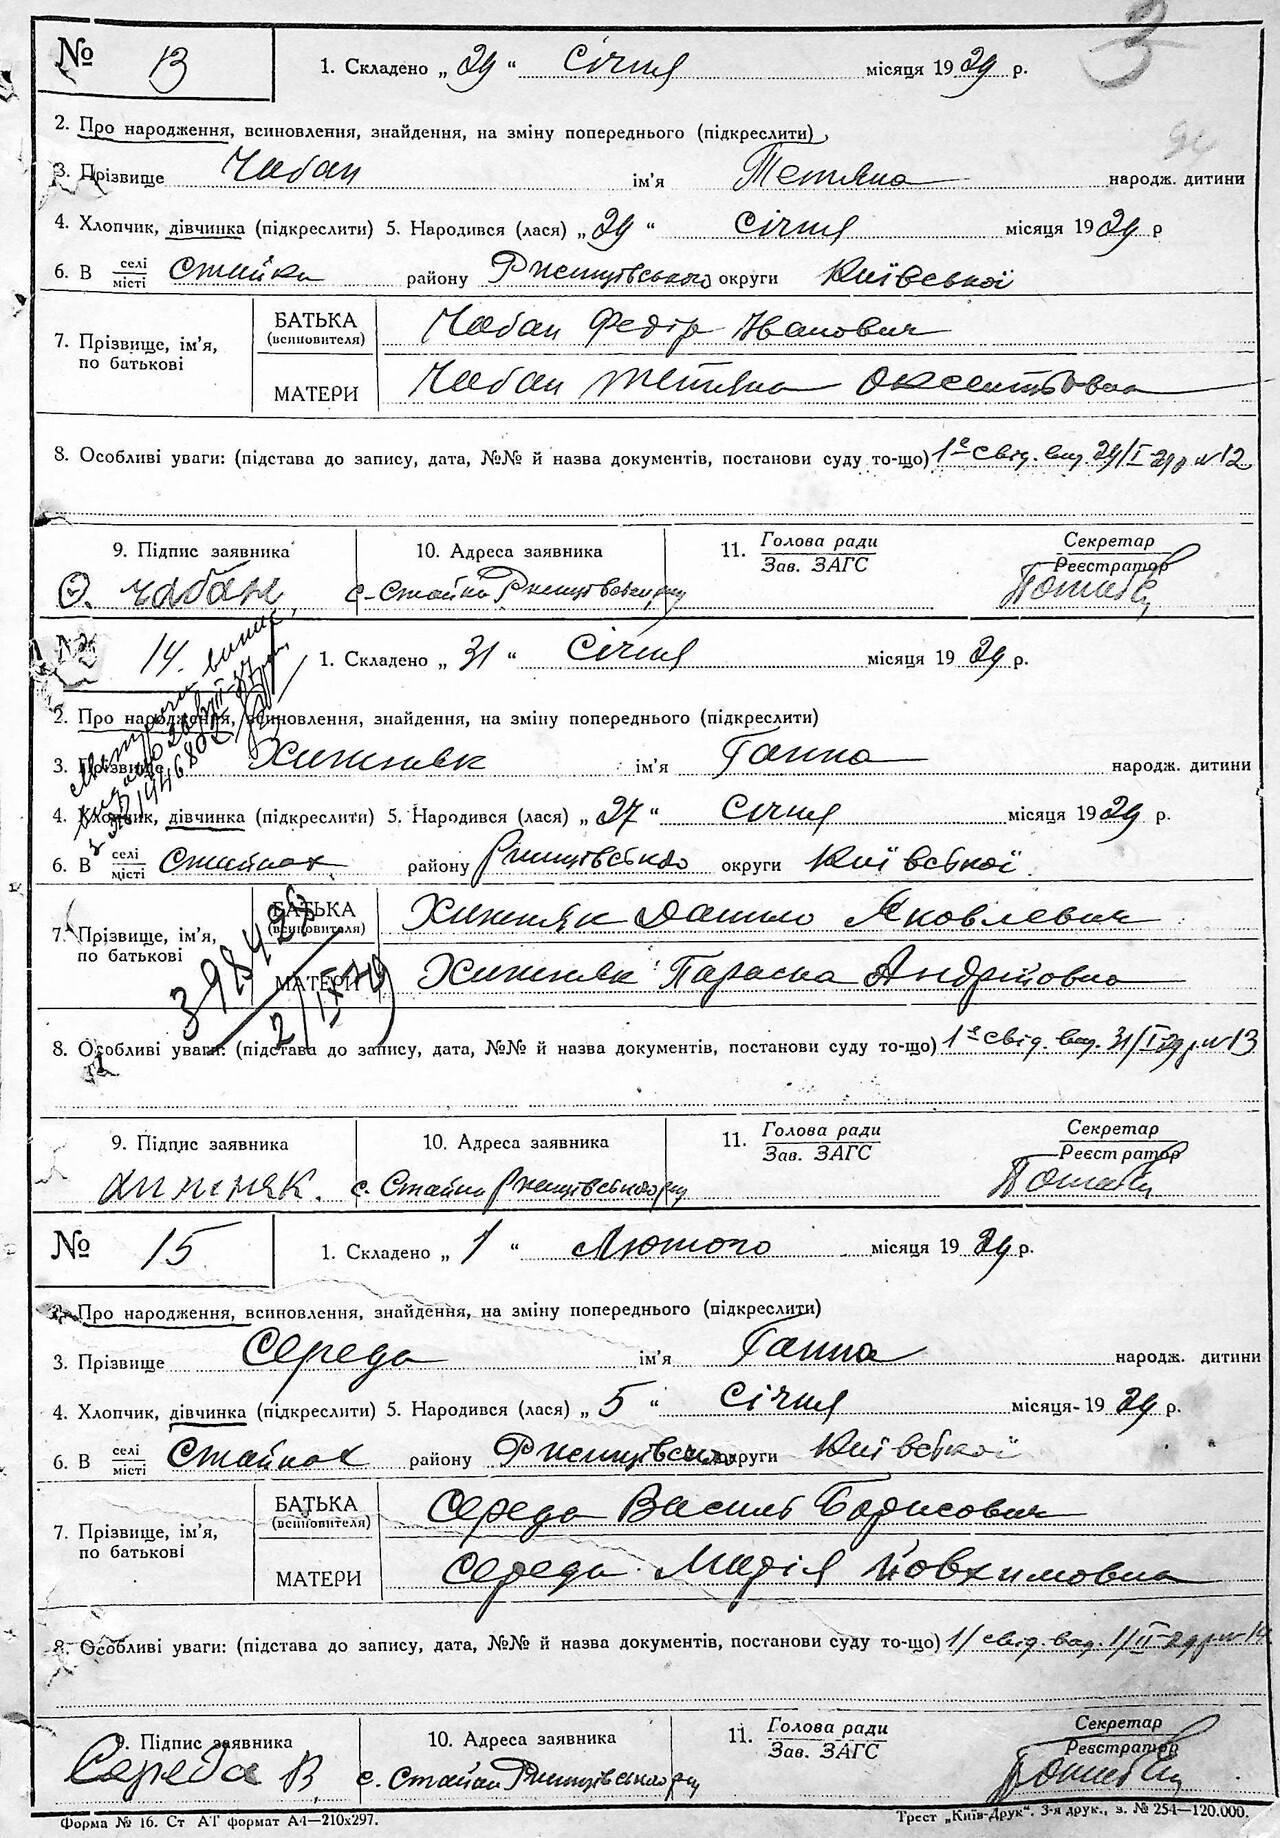 3
№ 13 1. Складено „ 29 “ Січня місяця 19 29 р.
2. Про народження, всиновлення, знайдення, на зміну попереднього (підкреслити)
3. Прізвище Чабан ім'я Тетяна народж. дитини
4. Хлопчик, дівчинка (підкреслити) 5. Народився (лася) „ 29 “ Січня місяця 19 29 р
6. В селі місті Стайки району Ржищівського округи Київської
7. Прізвище, ім'я, по батькові
БАТЬКА (всиновителя) Чабан Федір Іванович
МАТЕРИ Чабан Тетяна Оксентівна
8. Особливі уваги: (підстава до запису, дата, №№ й назва документів, постанови суду то-що) 1е свід. вид. 29/I-29р №12
9. Підпис заявника 10. Адреса заявника 11. Голова ради Зав. ЗАГС Секретар Реєстратор
Ф. Чабан с. Стайки Ржищівського р-ну
№ 14. 1. Складено „ 31 “ Січня місяця 19 29 р.
2. Про народження, всиновлення, знайдення, на зміну попереднього (підкреслити)
3. Прізвище Хижняк ім'я Ганна народж. дитини
4. Хлопчик, дівчинка (підкреслити) 5. Народився (лася) „ 27 “ Січня місяця 19 29 р.
6. В селі місті Стайках району Ржищівського округи Київської
7. Прізвище, ім'я, по батькові
БАТЬКА (всиновителя) Хижняк Данило Яковлевич
МАТЕРИ Хижняк Параска Андріівна
398423
2/IX-79
8. Особливі уваги: (підстава до запису, дата, №№ й назва документів, постанови суду то-що) 1е свід. вид. 31/I-29р. №13
9. Підпис заявника 10. Адреса заявника 11. Голова ради Зав. ЗАГС Секретар Реєстратор
Хижняк. с. Стайки Ржищівського р-ну
№ 15 1. Складено „ 1 “ Лютого місяця 19 29 р.
2. Про народження, всиновлення, знайдення, на зміну попереднього (підкреслити)
3. Прізвище Середа ім'я Ганна народж. дитини
4. Хлопчик, дівчинка (підкреслити) 5. Народився (лася) „ 5 “ Січня місяця- 19 29 р.
6. В селі місті Стайках району Ржищівського округи Київської
7. Прізвище, ім'я, по батькові
БАТЬКА (всиновителя) Середа Василь Борисович
МАТЕРИ Середа Марія Йовхимовна
8. Особливі уваги: (підстава до запису, дата, №№ й назва документів, постанови суду то-що) 1/ свід. вид. 1/II-29р. №14
9. Підпис заявника 10. Адреса заявника 11. Голова ради Зав. ЗАГС Секретар Реєстратор
Середа В с. Стайки Ржищівського р-ну
Форма № 16. Ст АТ формат А4—210х297. Трест „Київ-Друк“. 3-я друк., з. № 254—120.000.